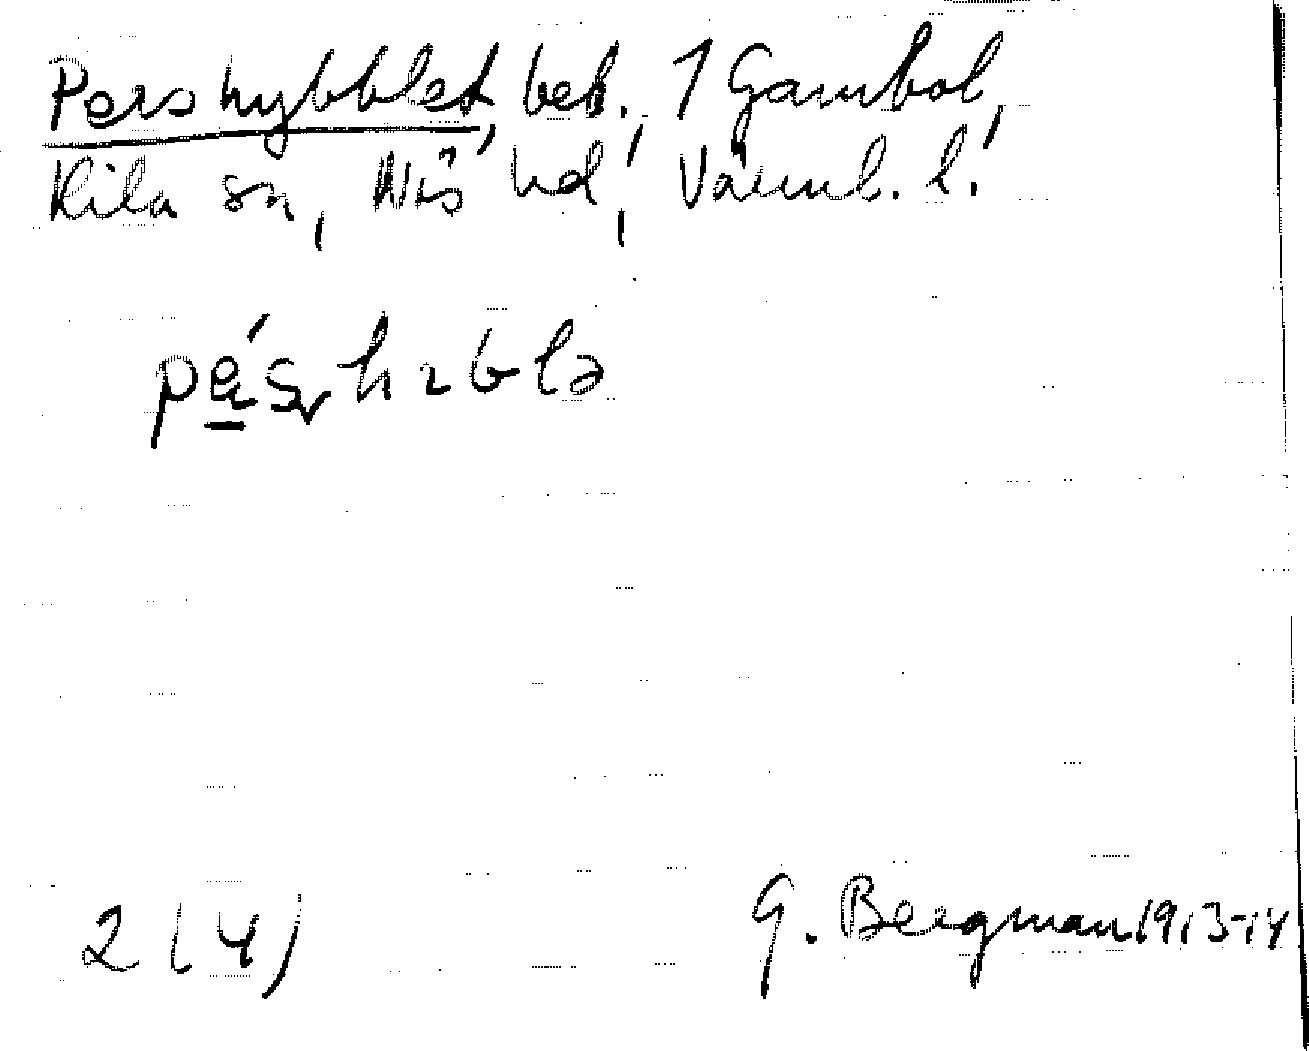 Pershybblet, beb. 1 Gambol,
Kila sn, Näs hd, Värml. l.
pá̱sȥhıblə
2 (4)
G. Bergman 1913-14